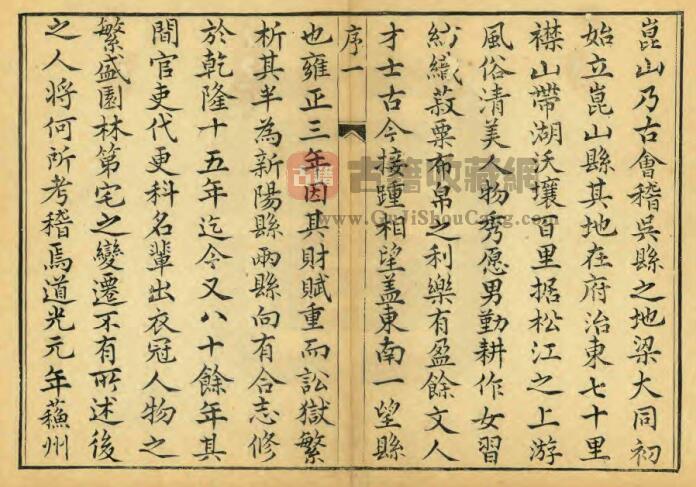 崑山乃古會稽吳縣之地梁大同初
始立崑山縣其地在府治東七十里
襟山帶湖沃壤百里据松江之上游
風俗清美人物秀愿男勤耕作女習
紡織菽粟布帛之利樂有盈餘文人
才士古今接踵相望盖東南一望縣
序一
也雍正三年因其財賦重而訟獄繁
析其半為新陽縣兩縣向有合志修
於乾隆十五年迄今又八十餘年其
間官吏代更科名輩出衣冠人物之
繁盛園林第宅之變遷不有所述後
之人将何所考稽焉道光元年蘓州
古籍
古籍收藏網
www.GuJiShouCang.com